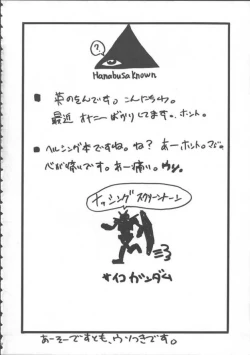 ?
Hanabusa Known
■ 英のをんです。こんにちわ。
最近 オヤニーばかりしてます。ホント。
■ ヘルシング本ですね。ね？あーホント。マジ。
ペルが痛いです。あー痛い。ウソ。
ナッシング スクリーントーン
サイコガンダム
あーそーですとも、ウソつきです。